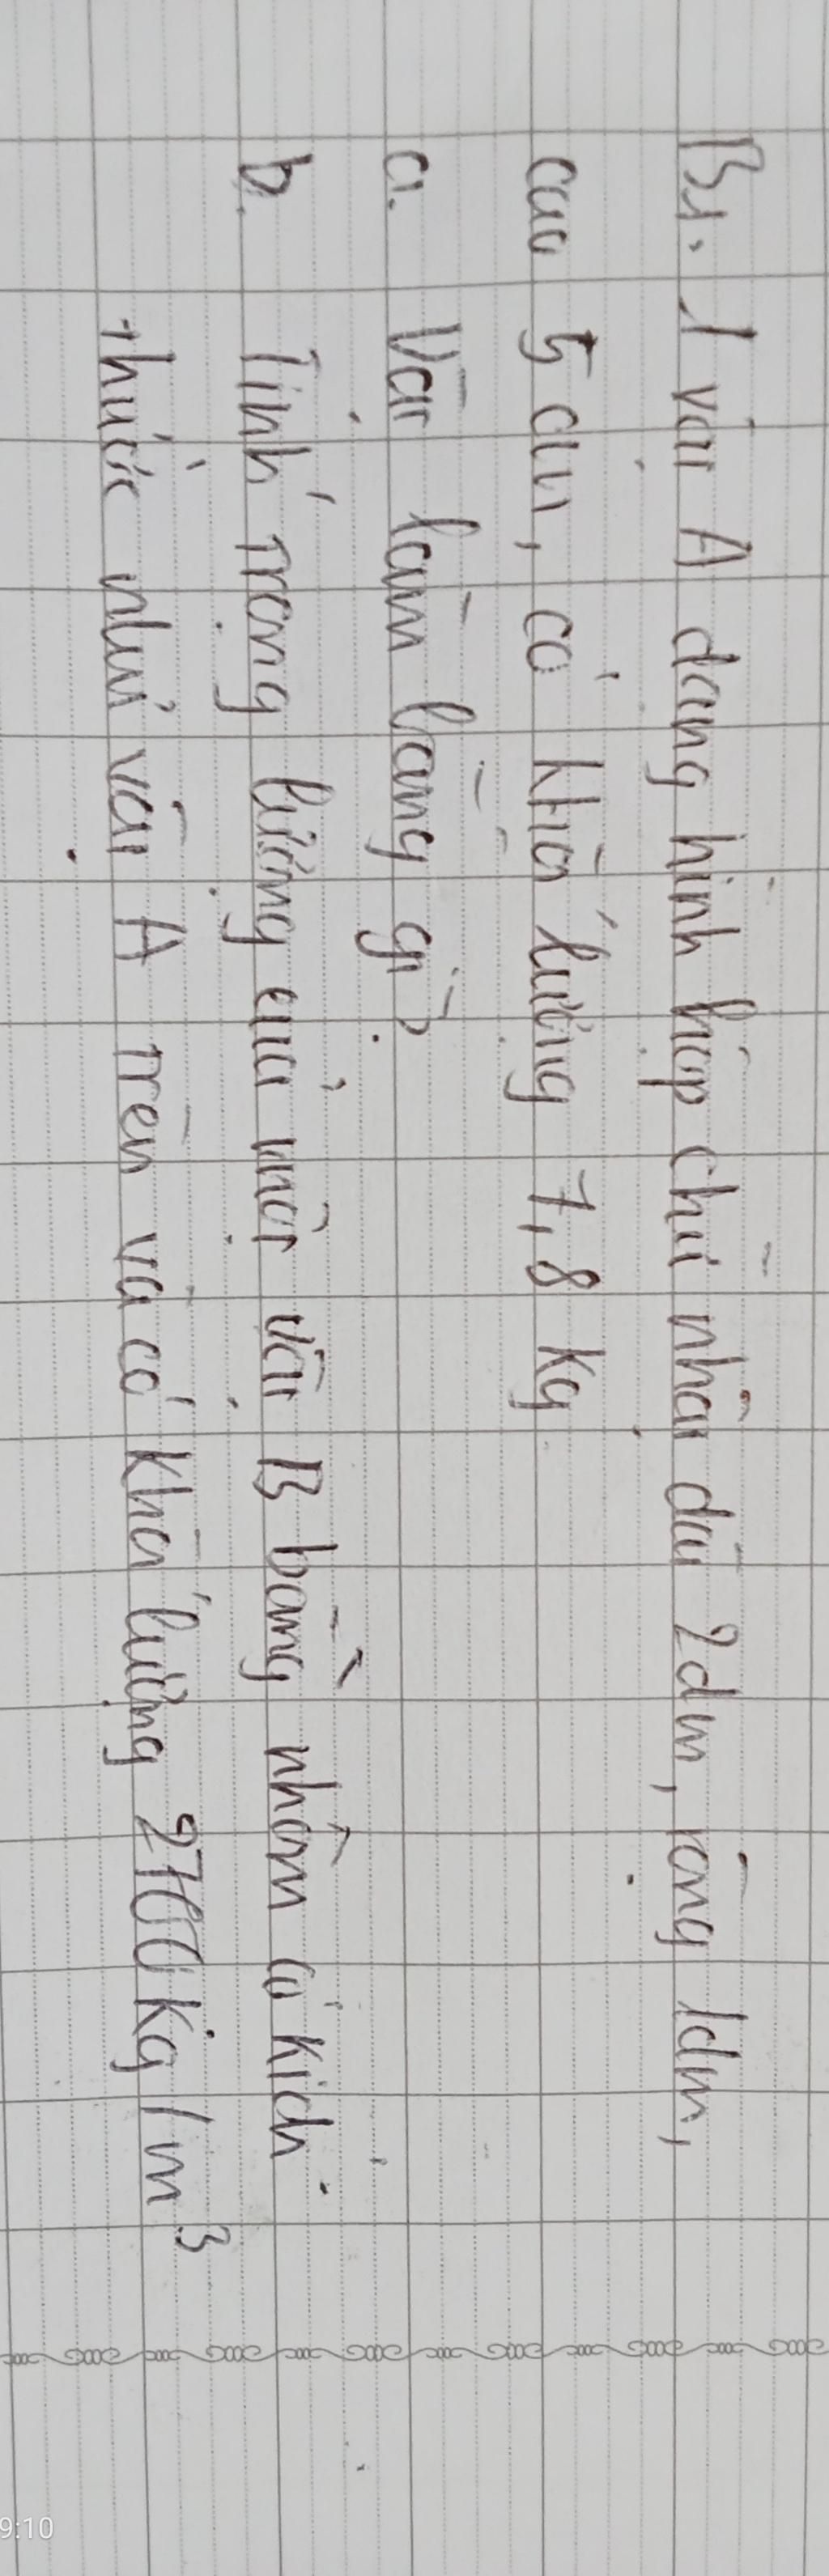 B1. 1 vật A dạng hình hộp chữ nhật dài 2dm, rộng 1dm,
cao 5cm, có khối lượng 7,8 kg
a. Vật làm bằng gì?
b. Tính trọng lượng của một vật B bằng nhôm có kích
thước như vật A trên và có khối lượng 2700kg/m³
9:10